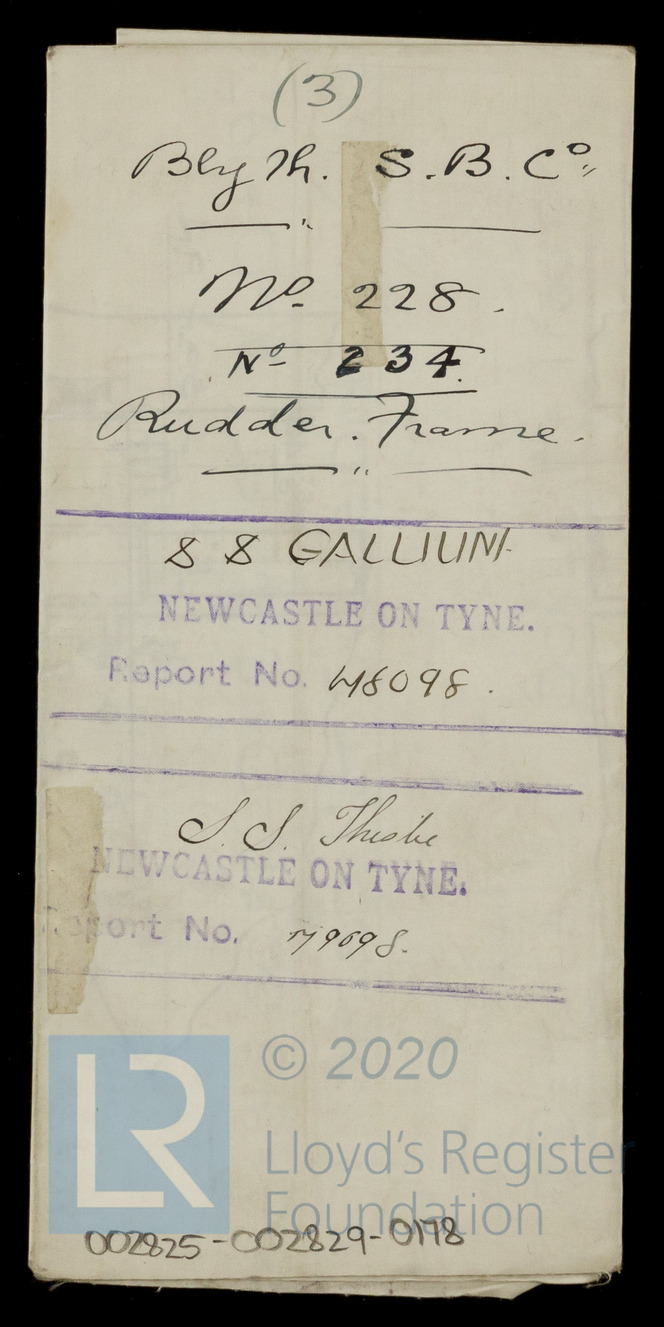 (3)
Blyth. S. B. Co.
No. 228.
No. 234.
Rudder. Frame.
S S GALLIUM
NEWCASTLE ON TYNE.
Report No. 78098.
S. S. Thisbe
NEWCASTLE ON TYNE.
Report No. 79098.
LR
© 2020
Lloyd's Register
Foundation
002825-002829-0178